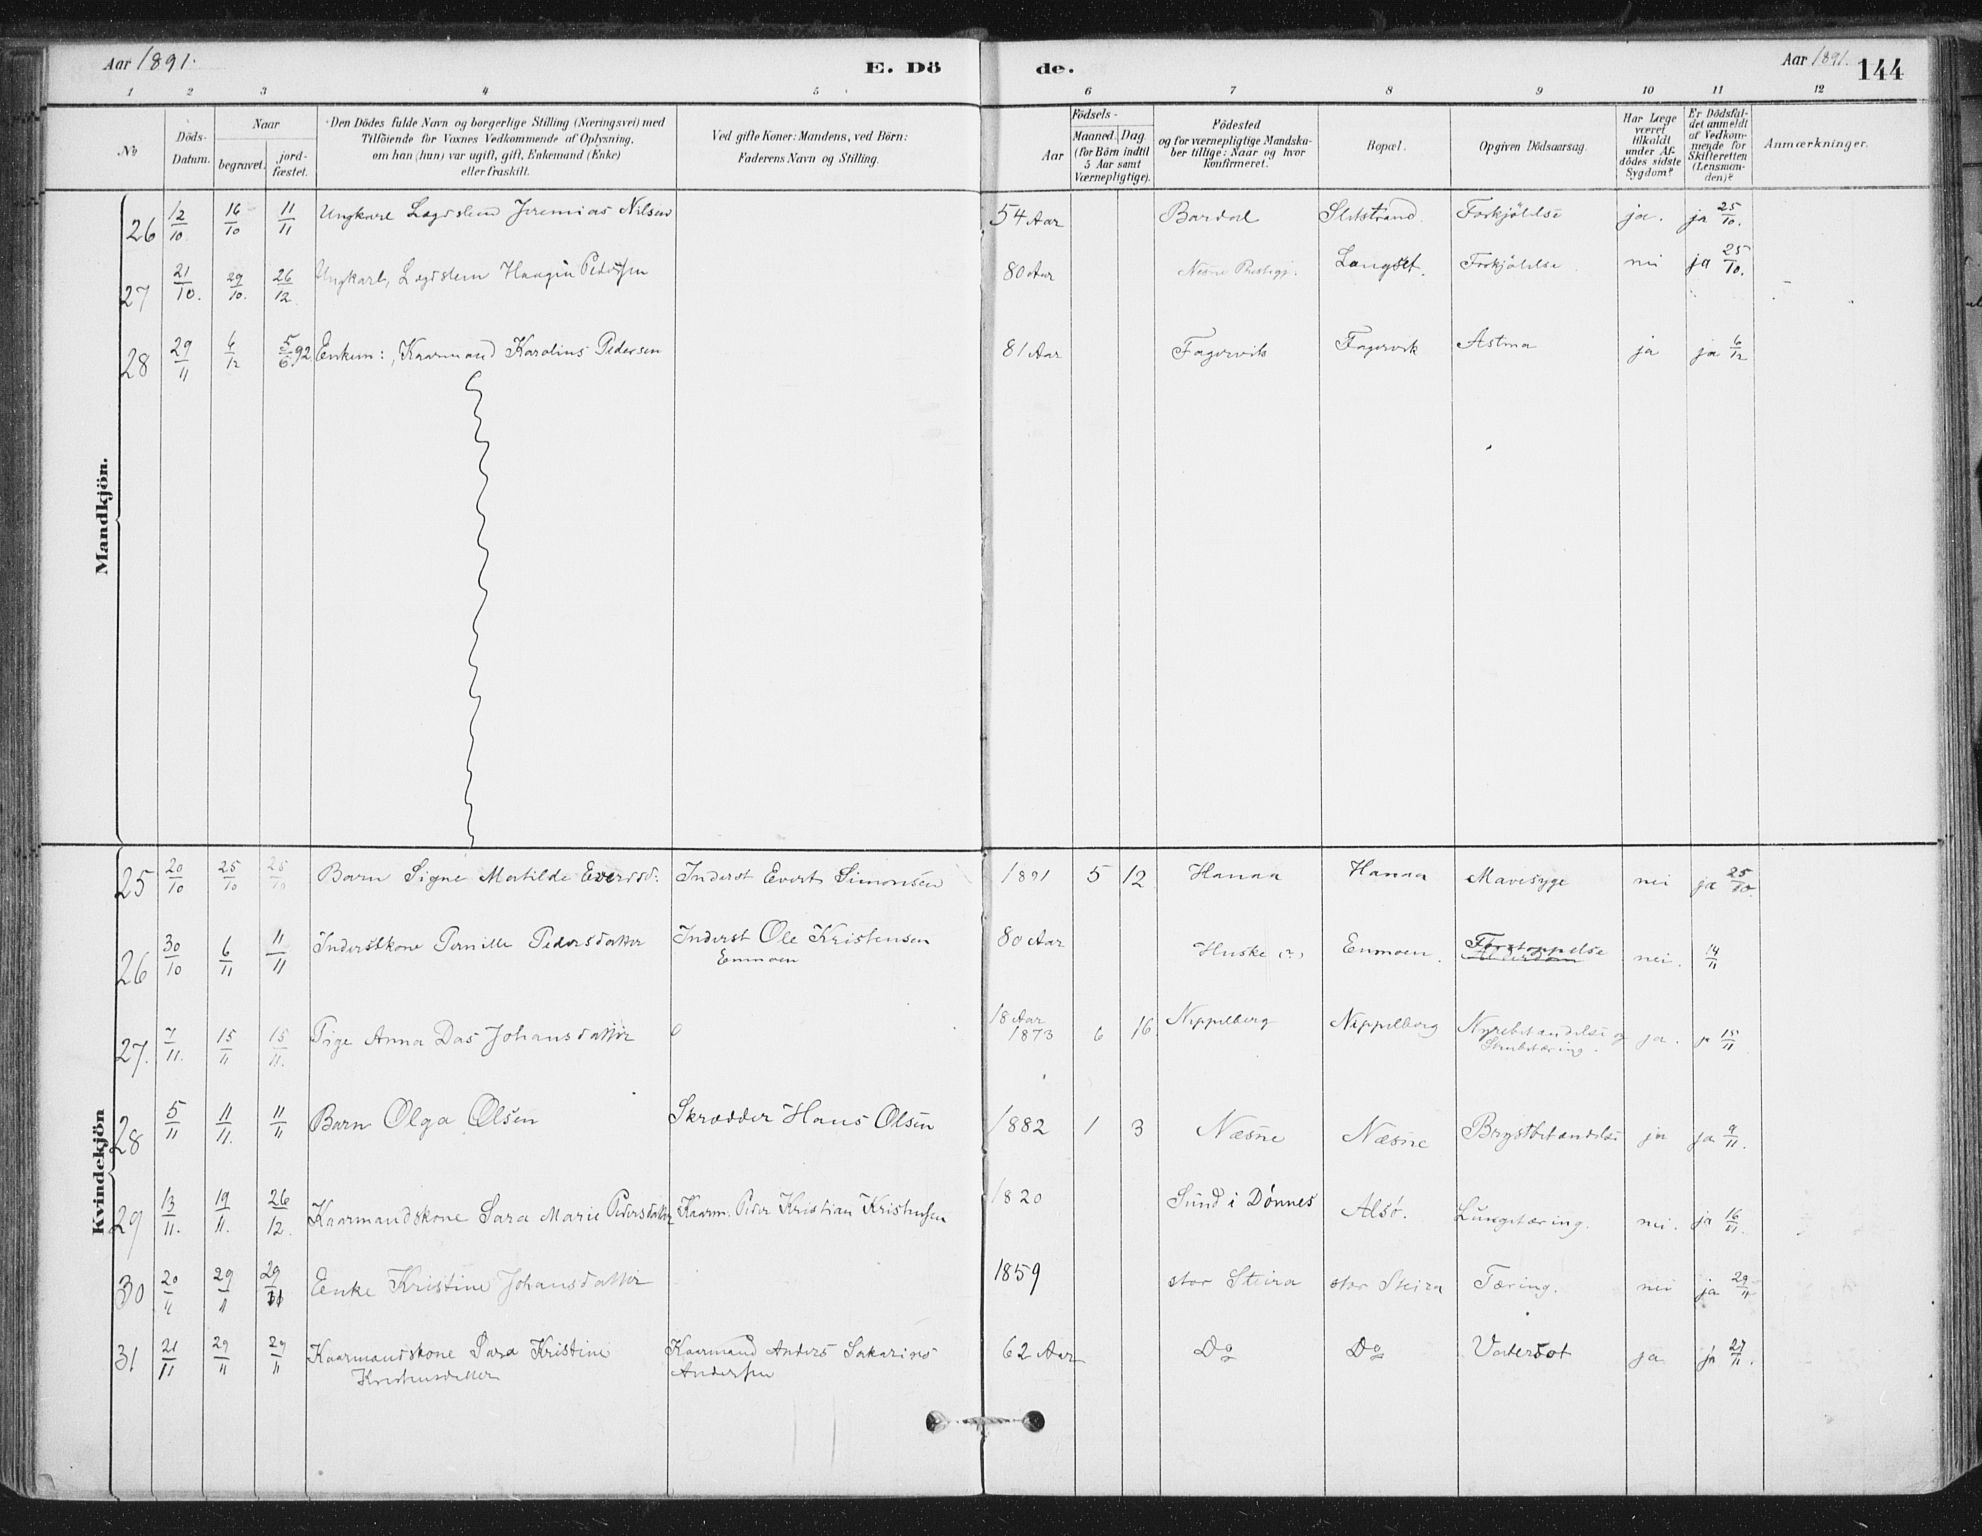 Aar 1891.
E. Dö
de.
Aar 1891.
144
1 2 3 4 5 6 7 8 9 10 11 12
No
Döds-Datum.
Naar
begravet.
jord-fæstet.
Den Dödes fulde Navn og borgerlige Stilling (Næringsvei) med
Tilföiende for Voxnes Vedkommende af Oplysning,
om han (hun) var ugift, gift, Enkemand (Enke)
eller fraskilt.
Ved gifte Koner: Mandens, ved Börn:
Faderens Navn og Stilling.
Födsels-
Aar
Maaned. Dag
(for Börn indtil
5 Aar samt
Værnepligtige).
Födested
og for værnepligtige Mandska-
ber tillige: Naar og hvor
konfirmeret.
Bopæl.
Opgiven Dödsaarsag.
Har Læge
været
tilkaldt
under Af-
dödes sidste
Sygdom?
Er Dödsfal-
det anmeldt
af Vedkom-
mende for
Skifteretten
(Lensman-
den)?
Anmærkninger.
Mandkjön.
26 12/10 16/10 11/11 Ungkarl Lægdslem Jeremias Nilsen 54 Aar Bardal Sletstrand. Forkjölelse ja. ja 25/10.
27 21/10. 29/10. 26/12 Ungkarl, Lægdslem Haagin Pedersen 80 Aar Nesne Prestegj. Langset. Forkjölelse nei ja 25/10.
28 29/11 6/12 5/6 92 Enkem:, Kaarmand Karolius Pedersen 81 Aar Fagervik Fagervik Astma ja ja 6/12
Kvindekjön
25 20/10 25/10 25/10 Barn Signe Matilde Evertsd. Inderst Evert Simonsen 1891 5 12 Hanaa Hanaa Mavesyge nei ja 25/10.
26 30/10 6/11 11/11 Inderstkone Pernille Pedersdatter Inderst Ole Kristensen 80 Aar Huske (?) Enmoen. Forstoppelse nei. 14/11
Enmoen Alderdom
27. 7/11. 15/11 15/11. Pige Anna Das Johansdatter 18 Aar
1873 6 16. Nippelberg Nippelberg Nyrebetændelse og ja. ja 15/11
28 5/11 11/11. 11/11 Barn Olga Olsen Skrædder Hans Olsen 1882 1 3 Næsne Næsne Brystbetændelse ja ja 9/11.
29 13/11. 19/11. 26/12. Kaarmandskone Sara Marie Pedersdatter Kaarm. Peder Kristian Kristensen 1820 Sund i Dönnes Alsö. Lungetæring. nei. ja 16/11.
30 20/11 29/11 29/11 Enke Kristine Johansdatter 1859 stor Steira stor Steira Tæring. nei ja 29/11
31 21/11 29/11 29/11 Kaarmandskone Sara Kristine Kaarmand Anders Sakarias 62 Aar Do Do Vatersot ja ja 27/11.
Kristensdatter Andersen